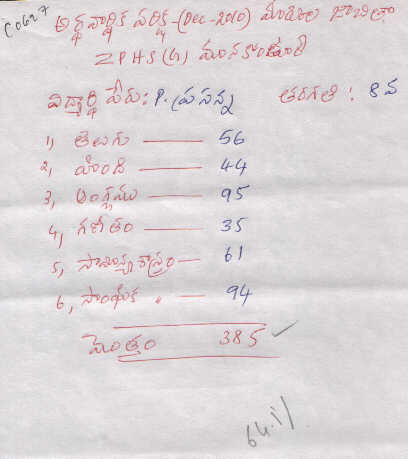 C0627
అర్థవార్షిక పరీక్ష-(Dec-2010) మార్కుల జాబితా
ZPHS(G) మానకొండూర్
విద్యార్థి పేరు: P. ప్రసన్న తరగతి : 8వ
1, తెలుగు — 56
2, హింది — 44
3, ఆంగ్లము — 95
4, గణితం — 35
5, సామాన్యశాస్త్రం — 61
6, సాంఘిక " — 94
మొత్తం 385 ✓
64.1%